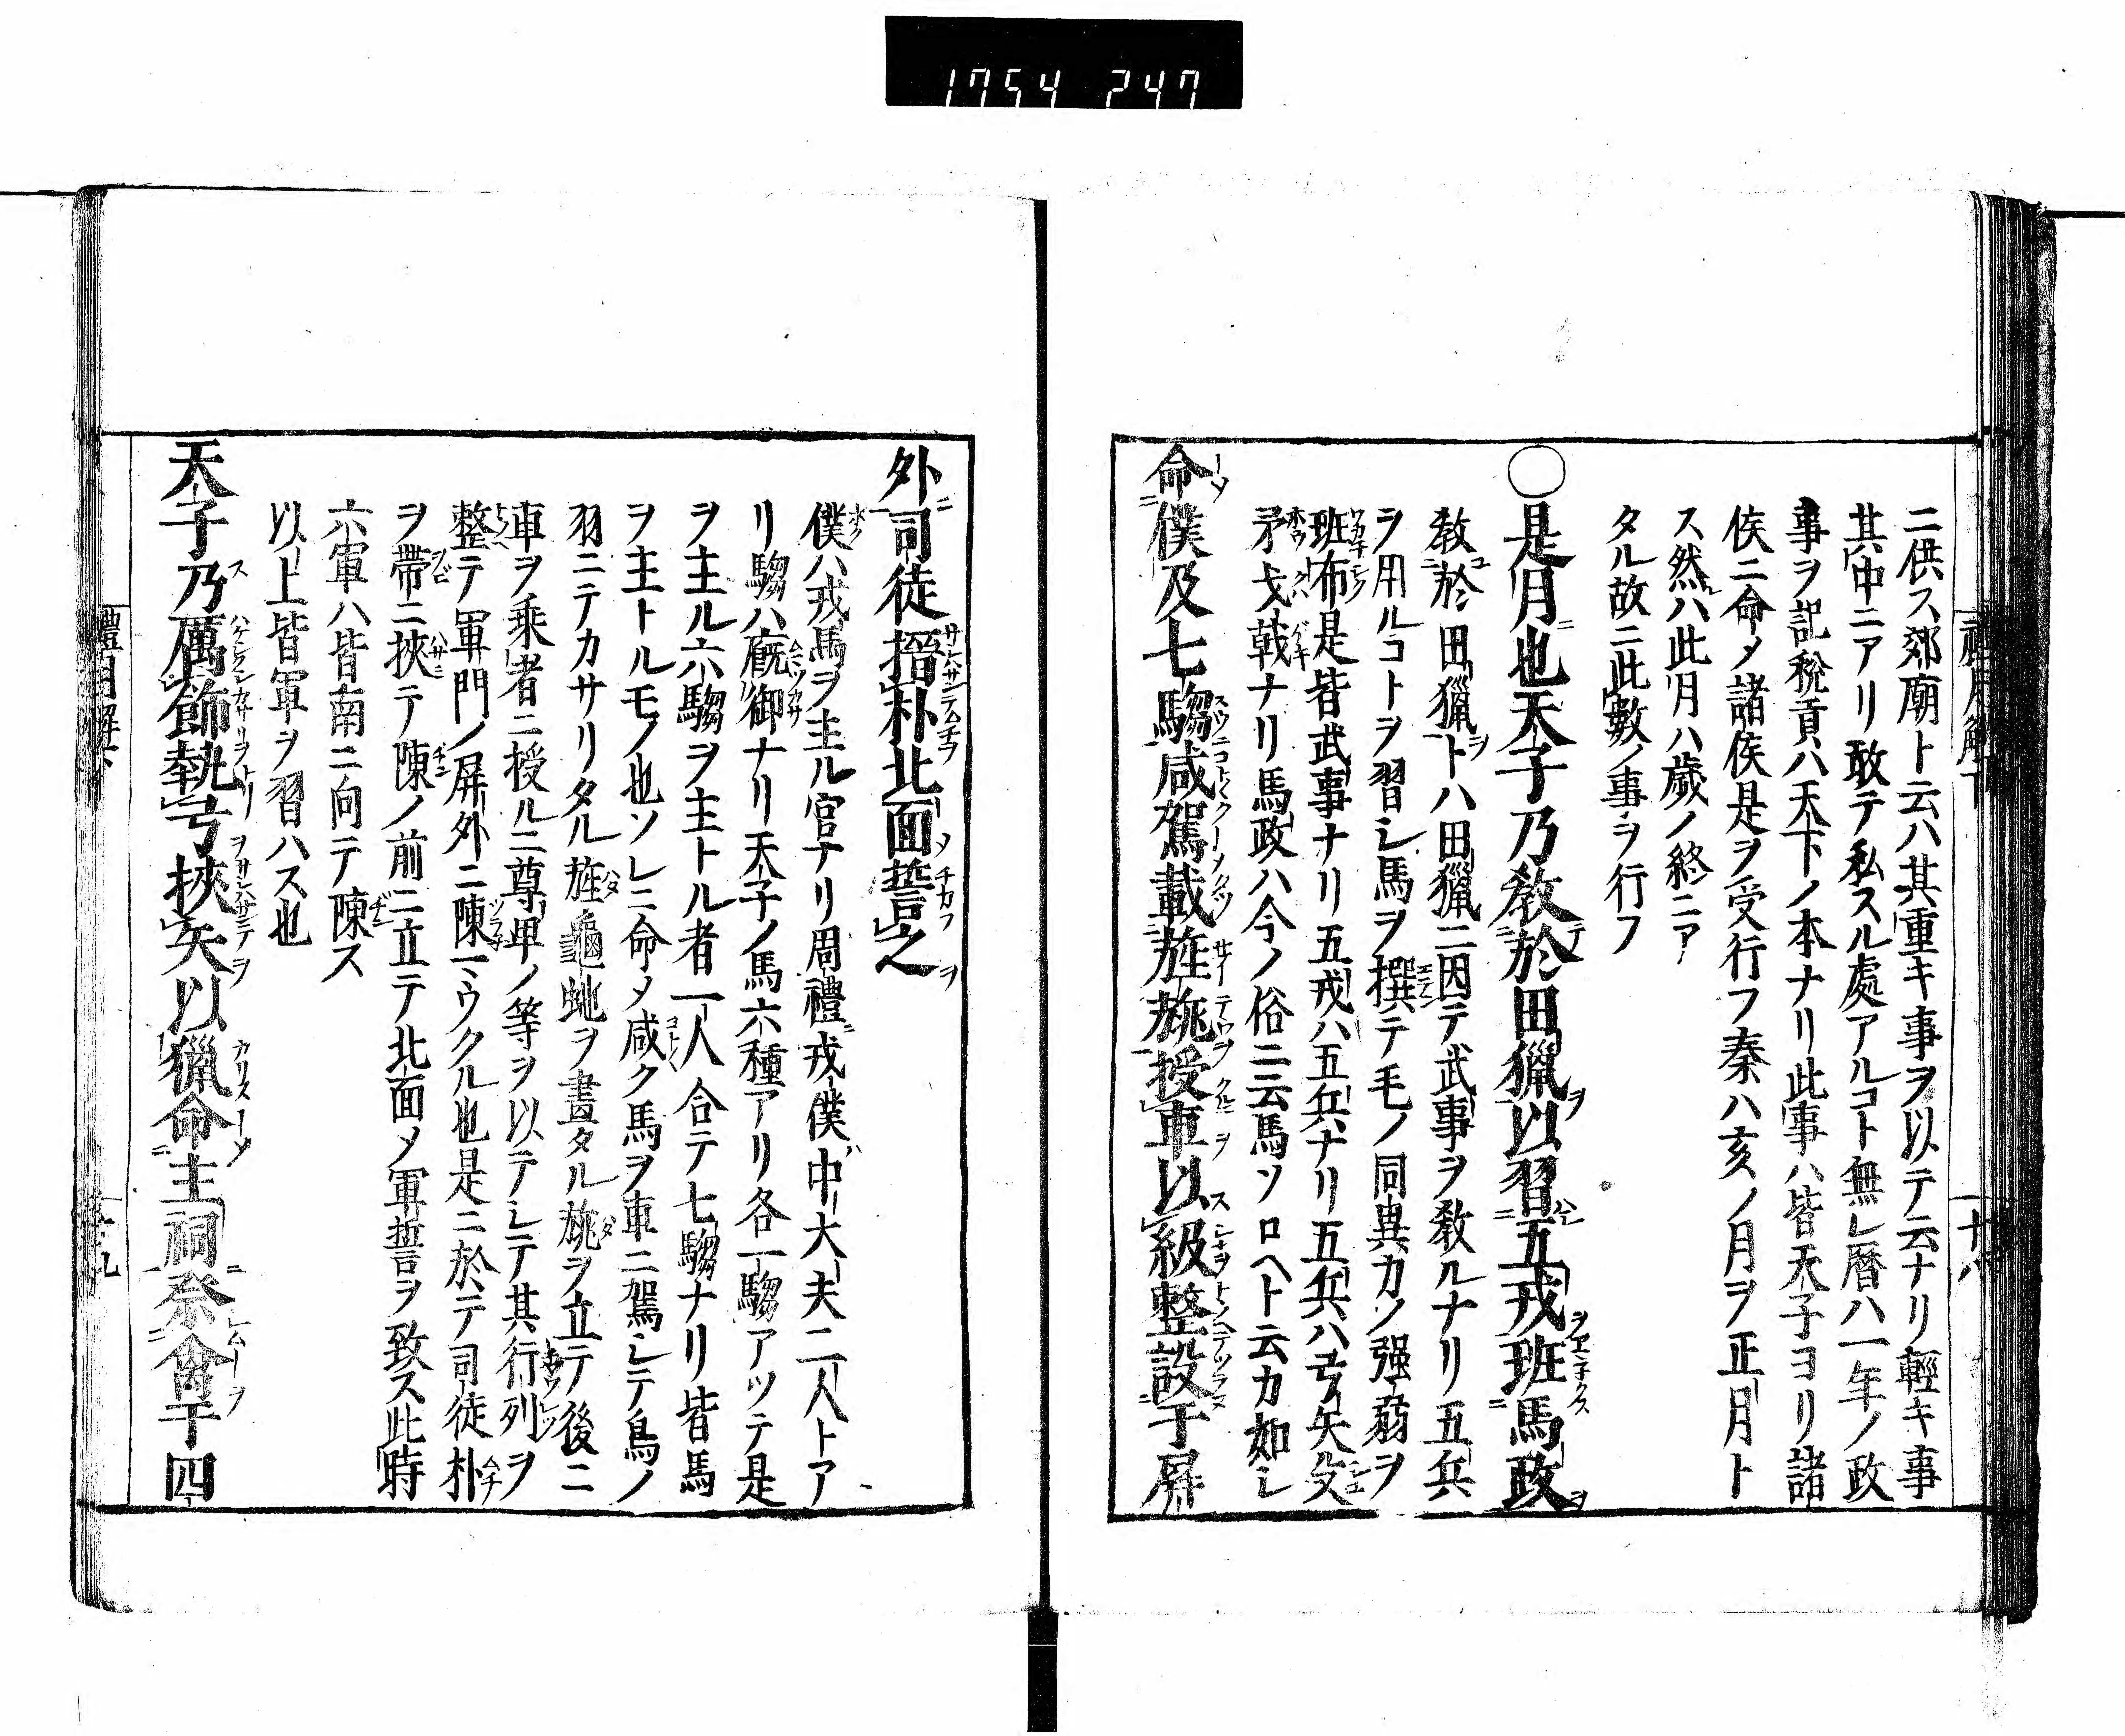 1754 247
二供ス郊廟ト云ハ其重キ事ヲ以テ云ナリ輕キ事
其中ニアリ敢テ私スル處アルコト無レ暦ハ一年ノ政
事ヲ記税貢ハ天下ノ本ナリ此事ハ皆天子ヨリ諸
侯ニ命メ諸侯是ヲ受行フ秦ハ亥ノ月ヲ正月ト
ス然レハ此月ハ歳ノ終ニア
タル故ニ此數ノ事ヲ行フ
○是月也天子乃敎於田獵以習五戎班馬政
敎於田獵トハ田獵ニ因テ武事ヲ敎ルナリ五兵
ヲ用ルコトヲ習シ馬ヲ撰テ毛ノ同異カノ强弱ヲ
班布是皆武事ナリ五戎ハ五兵ナリ五兵ハ弓矢殳
矛戈戟ナリ馬政ハ今ノ俗ニ云馬ソロヘト云カ如シ
命僕及七騶咸駕載旌旐授車以級整設于屏
外司徒搢朴北面誓之
僕ハ戎馬ヲ主ル官ナリ周禮戎僕中大夫二人トア
リ騶ハ廐御ナリ天子ノ馬六種アリ各一騶アツテ是
ヲ主ル六騶ヲ主トル者一人合テ七騶ナリ皆馬
ヲ主トルモノ也ソレニ命メ咸ク馬ヲ車ニ駕シテ鳥ノ
羽ニテカサリタル旌龜蛇ヲ畫タル旐ヲ立テ後ニ
車ヲ乗者ニ授ルニ尊卑ノ等ヲ以テシテ其行列ヲ
整テ軍門ノ屏外ニ陳ミウクル也是ニ於テ司徒朴
ヲ帶ニ挾テ陳ノ前ニ立テ北面メ軍誓ヲ致ス此時
六軍ハ皆南ニ向テ陳ス
以上皆軍ヲ習ハス也
天子乃厲飾執弓挾矢以獵命主祠祭禽于四
禮月解下